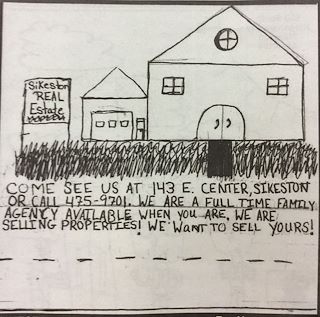 Sikeston
REAL
Estate
COME SEE US AT 143 E. CENTER, SIKESTON
OR CALL 475-9701. WE ARE A FULL TIME FAMILY
AGENCY AVAILABLE WHEN YOU ARE. WE ARE
SELLING PROPERTIES! WE WANT TO SELL YOURS!